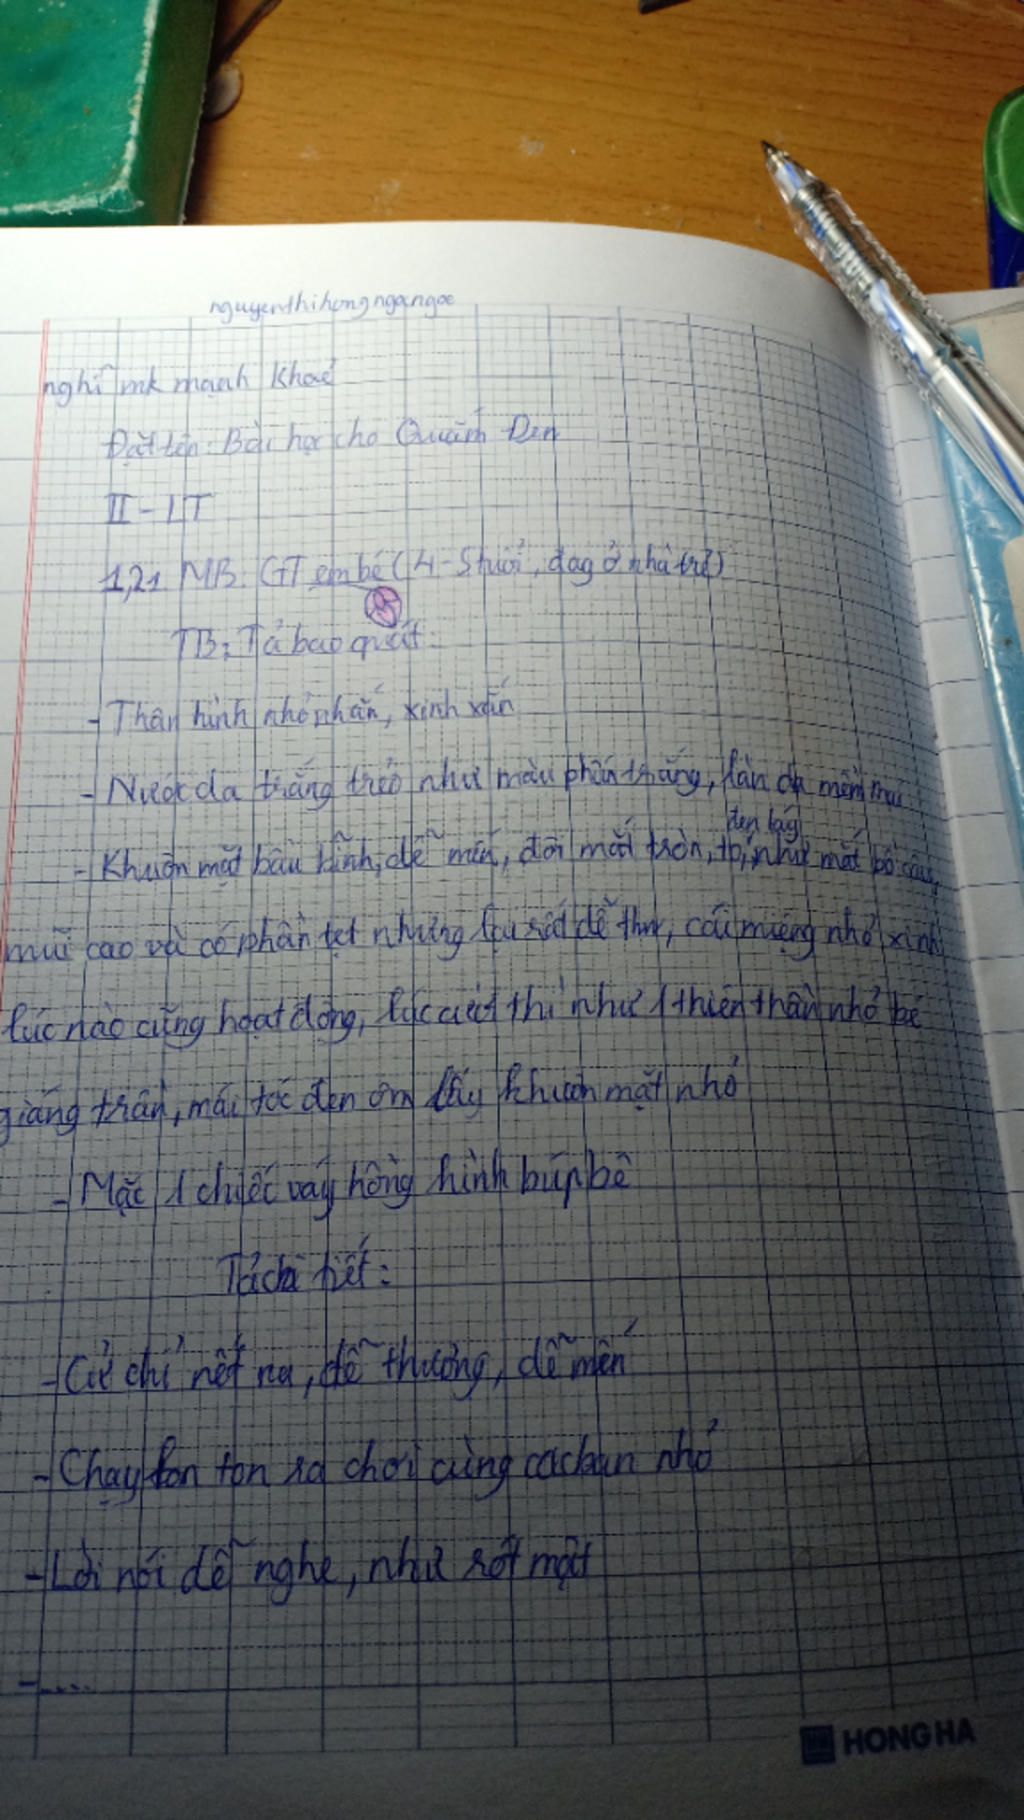 nguyenthihongngangoc
nghĩ mk mạnh khoẻ
Đặt tên: Bài học cho Quắm Đen
II - LT
1,21 MB: GT em bé (4-5 tuổi, đag ở nhà trẻ)
TB: Tả bao quát:
- Thân hình nhỏ nhắn, xinh xắn
- Nước da trắng trẻo như màu phấn trắng, làn da mềm mại
đen láy
- Khuôn mặt bầu bĩnh, dễ mến, đôi mắt tròn, to, như mắt bồ câu,
mũi cao và có phần tẹt nhưng lại rất dễ thw, cái miệng nhỏ xinh
lúc nào cũng hoạt động, lúc cười thì như 1 thiên thần nhỏ bé
giáng trần, mái tóc đen ôm lấy khuôn mặt nhỏ
- Mặc 1 chiếc váy hồng hình búp bê
Tả chi tiết:
- Cử chỉ nết na, dễ thương, dễ mến
- Chạy lon ton ra chơi cùng các bạn nhỏ
- Lời nói dễ nghe, như rót mật
- ....
HONG HA